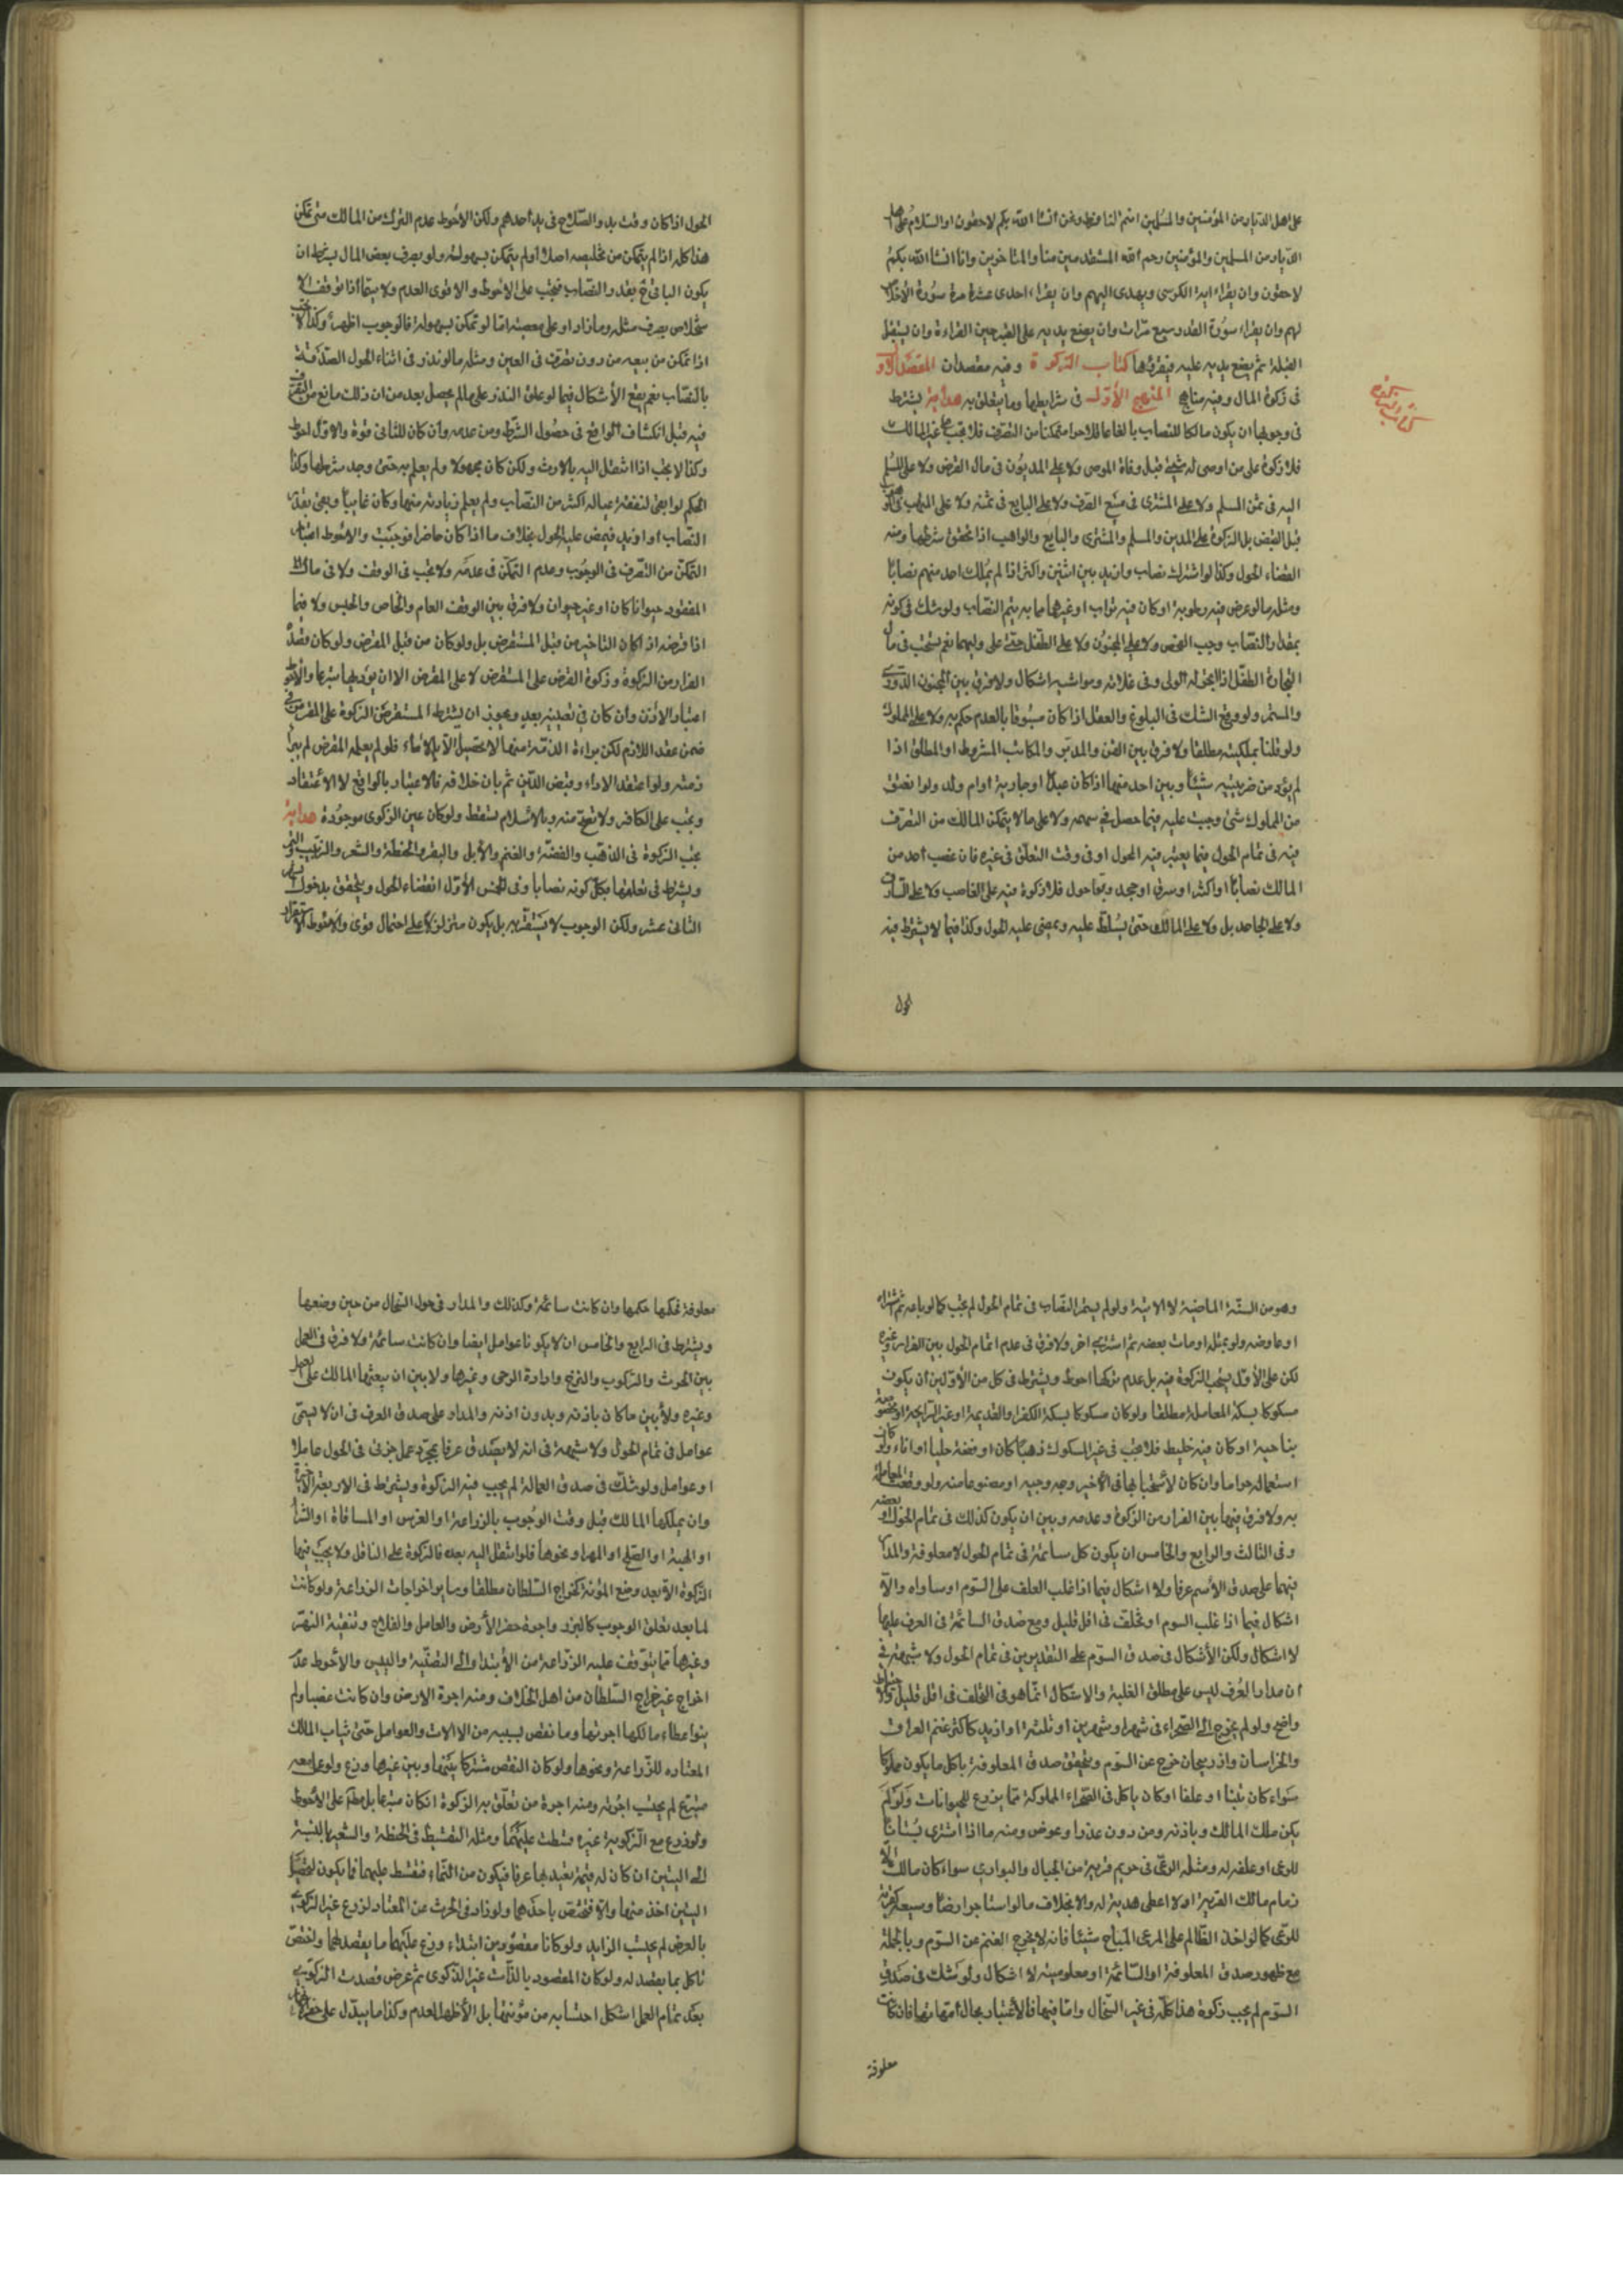 على اهل الديار من المؤمنين والمسلمين انتم لنا فرط ونحن انشاء الله بكم لاحقون او السلام على اهل
الديار من المسلمين والمؤمنين رحم الله المستقدمين منا والمتاخرين وانا انشاء الله بكم
لاحقون وان يقراء اية الكرسى ويهدى اليهم وان يقراء احدى عشرة مرة سورة الاخلاص
لهم وان يقراء سورة القدر سبع مرات وان يضع يديه على القبر حين القراءة وان يستقبل
القبلة ثم يضع يديه عليه فيقرئها كتاب الزكوة وفيه مقصدان المقصد الاول
فى زكوة المال وفيه مناهج المنهج الأول فى شرايطها وما يتعلق به هداية يشترط
كتاب الزكوة
فى وجوبها ان يكون مالكا للنصاب بالغا عاقلا حرا متمكنا من التصرف فلا تجب على غير المالك
فلا زكوة على من اوصى له بشئ قبل وفاة الموصى ولا على المديون فى مال القرض ولا على المسلم
اليه فى ثمن المسلم ولا على المشترى فى مبيع الصرف ولا على البايع فى ثمنه ولا على المتهب فى الموهوب
قبل القبض بل الزكوة على المدين والمسلم والمشترى والبايع والواهب اذا تحقق شرطها ومنه
انقضاء الحول وكذا لو اشترك نصاب وازيد بين اثنين واكثر اذا لم يملك احد منهم نصابا
ومثله ما لو عرض فيه رطوبة او كان فيه تراب او غيرهما مما به يتم النصاب ولو شك فى كونه
بمقدار النصاب وجب الفحص ولا على المجنون ولا على الطفل حتى على وليهما نعم يستحب فى مال
التجارة الطفل اذا اتجر له الولى وفى غلاته ومواشيه اشكال ولا فرق بين المجنون الدورى
والمستمر ولو وقع الشك فى البلوغ والعقل اذا كان مسبوقا بالعدم حكم به ولا على المملوك
ولو قلنا بملكيته مطلقا ولا فرق بين القن والمدبر والمكاتب المشروط او المطلق اذا
لم يؤد من ضريبته شيئا وبين احد منهما اذا كان عبدا او جارية او ام ولد ولو انعتق
من المملوك شئ وجبت عليه فيما حصل فى سهمه ولا على ما لا يتمكن المالك من التصرف
فيه فى تمام الحول فيما يعتبر فيه الحول او فى وقت التعلق فى غيره فان غصب احد من
المالك نصابا او اكثر او سرق او جحد وبقا حول فلا زكوة فيه على الغاصب ولا على السارق
ولا على الجاحد بل ولا على المالك حتى يسلط عليه ويمضى عليه الحول وكذا فيما لا يشترط فيه
الحول
الحول اذا كان وقت بدو الصلاح فى يد احدهم ولكن الاحوط عدم الترك من المالك متى تمكن
هذا كله اذا لم يتمكن من تخليصه اصلا او لم يتمكن بسهولة ولو بصرف بعض المال بشرط ان
يكون الباقى بقدر النصاب فتجب على الاحوط والاقوى العدم ولا سيما اذا توقف الا
ستخلاص بصرف مثله وما زاد او على معصية اما لو تمكن بسهولة فالوجوب اظهر وكذا لا تجب
اذا تمكن من بيعه من دون تصرف فى العين ومثله ما لو نذر فى اثناء الحول الصدقة
بالنصاب نعم يقع الأشكال فيما لو علق النذر على ما لم يحصل بعد من ان ذلك مانع من التصرف
فيه قبل انكشاف الواقع فى حصول الشرط ومن عدمه وان كان للثانى قوة والاول احوط
وكذا لا يجب اذا انتقل اليه بالارث ولكن كان مجهولا ولم يعلم به حتى وجد شرطها وكذا
الحكم لو ابقى لنفقة عياله اكثر من النصاب ولم يعلم زيادته منها وكان غايبا وبقى بقدر
النصاب او ازيد فيمضى عليه الحول بخلاف ما اذا كان حاضرا فوجبت والاحوط اعتبار
التمكن من التصرف فى الوجوب وعدم التمكن فى عدمه ولا تجب فى الوقف ولا فى مال
المفقود حيوانا كان او غير حيوان ولا فرق بين الوقف العام والخاص والحبس ولا فيما
اذا قرضه اذا كان التاخير من قبل المستقرض بل ولو كان من قبل المقرض ولو كان قصد
الفرار من الزكوة وزكوة القرض على المستقرض لا على المقرض الا ان يؤديها تبرعا والاحوط
اعتبار الاذن وان كان فى تعيينه بعد ويجوز ان يشترط المستقرض الزكوة على المقرض فى
ضمن عقد اللازم لكن براءة الذمة منها لا يحصل الا بالاداء فلو لم يعطه المقرض لم يبرأ
ذمته ولو اعتقد الاداء وقبض الدين ثم بان خلافه فالاعتبار بالواقع لا الاعتقاد
وتجب على الكافر ولا تصح منه وبالاسلام تسقط ولو كان عين الزكوى موجودة هداية
تجب الزكوة فى الذهب والفضة والغنم والأبل والبقر والحنطة والشعير والزبيب والتمر
ويشترط فى تعلقها بكل كونه نصابا وفى الخمس الأول انقضاء الحول ويتحقق بدخول
الثانى عشر ولكن الوجوب لا يستقر به بل يكون متزلزلا على احتمال قوى والاحوط الاستقرار
وهو من السنة الماضية لا الاتية ولو لم يستمر النصاب فى تمام الحول لم تجب كما لو باعه ثم اشتراه
او عاوضه ولو بمثله او مات بعضه ثم اشترى اخر ولا فرق فى عدم اتمام الحول بين الفرار وغيره
لكن على الأول يستحب الزكوة فيه بل عدم تركها احوط ويشترط فى كل من الأولين ان يكون
مسكوكا بسكة المعاملة مطلقا ولو كان مسكوكا بسكة الكفر او القديمة او غير الرايجة او مخصوصة
بناحية او كان فيه خليط فلا تجب فى غير المسكوك ذهبا كان او فضة حليا او اناء ولو كان
استعماله حراما وان كان لاستحبابها فى الأخير وجه وجيه او مصنوعا منه ولو وقعت المعاملة
به ولا فرق فيهما بين الفرار من الزكوة وعدمه وبين ان يكون كذلك فى تمام الحول او بعضه
وفى الثالث والرابع والخامس ان يكون كل سائمة فى تمام الحول لا معلوفة والمدار
فيهما على صدق الأسم عرفا ولا اشكال فيما اذا غلب العلف على السوم او ساواه والا
اشكال فيما اذا غلب السوم او تخلف فى اقل قليل ومع صدق السائمة فى العرف عليها
لا اشكال ولكن الأشكال فى صدق السوم على التقديرين فى تمام الحول ولا شبهة فى
ان مدار العرف ليس على مطلق الغلبة والاشكال انما هو فى التخلف فى اقل قليل
واضح ولو لم يخرج الى الصحراء فى شهر او شهرين او ثلثة او ازيد كاكثر غنم العراق
والخراسان واذربيجان خرج عن السوم ويتحقق صدق المعلوفة باكل ما يكون مملوكا
سواء كان تبنا او علفا او كان ياكل فى الصحراء المملوكة مما يزرع للحيوانات ولو لم
يكن ملك المالك وباذنه ومن دون عذر او عوض ومنه ما اذا اشترى بستانا
للرعى او علفه له ومثله الرعى فى حريم قرية من الجبال والبوادى سواء كان مالك
زمام مالك القرية او لا اعطى هدية له والا بخلاف ما لو استاجر ارضا وسيعة كقرية
للرعى كما لو اخذ الظالم على المرعى المباح شيئا فانه لا يخرج الغنم عن السوم وبالجملة
مع ظهور صدق المعلوفة او السائمة او معلوميته لا اشكال ولو شك فى صدق
السوم لم تجب زكوة هذا كله فى غير السخال واما فيها فالأعتبار بحال امهاتها فان كانت
معلوفة
معلوفة فحكمها حكمها وان كانت سائمة وكذلك والمدار فى حول السخال من حين وضعها
ويشترط فى الرابع والخامس ان لا يكونا عوامل ايضا وان كانت سائمة ولا فرق فى العمل
بين الحرث والركوب والنزح وادارة الرحى وغيرها ولا بين ان يبعثها المالك على العمل
وغيره ولا بين ما كان باذنه وبدون اذنه والمدار على صدق العرف فى ان لا يسمى
عوامل فى تمام الحول ولا شبهة فى انه لا يصدق عرفا بمجرد عمل جزئى فى الحول عاملا
او عوامل ولو شك فى صدق العمالة لم يجب فيه الزكوة ويشترط فى الاربعة الأخيرة
وان يملكها المالك قبل وقت الوجوب بالزراعة او الغرس او المساقاة او الشراء
او الهبة او الصلح او المهر او نحوها فلو انتقل اليه بعده فالزكوة على الناقل ولا يجب فيها
الزكوة الا بعد وضع المؤنة كخراج السلطان مطلقا وساير اخراجات الزراعة ولو كانت
لما بعد تعلق الوجوب كالبزر واجرة حفر الأرض والعامل والفلاح وتنقية النهر
وغيرها مما يتوقف عليه الزراعة من الأبتداء الى التصفية واليبس والأحوط عدم
اخراج غير خراج السلطان من اهل الخلاف ومنه اجرة الارض وان كانت غصبا ولم
ينو اعطاء مالكها اجرتها وما نقص بسببه من الالات والعوامل حتى ثياب المالك
المعتاده للزراعة ونحوها ولو كان النقص مشتركا بينها وبين غيرها وزع ولو عامعه
متبرع لم يحتسب اجرته ومنه اجرة من تعلق به الزكوة ان كان متبرعا بل مطلقا على الأحوط
ولو زرع مع الزكوية غيره قسطت عليهما ومثله التقسيط فى الحنطة والشعير بالنسبة
الى التبن ان كان له قيمة يعتد بها عرفا فيكون من النماء فقسط عليهما فما يكون لتحصيل
التبن اخذ منها والا فتختص باحدهما ولو زاد فى الحرث عن المعتاد لزرع غير الزكوى
بالعرض لم يحتسب الزايد ولو كانا مقصودين ابتداء وزع عليهما ما يقصد لهما واختص
كل بما يقصد له ولو كان المقصود بالذات غير الزكوى ثم عرض قصد الزكوى
بعد تمام العمل اشكل احتسابه من مؤنتها بل الأظهر العدم وكذا ما يبذل على